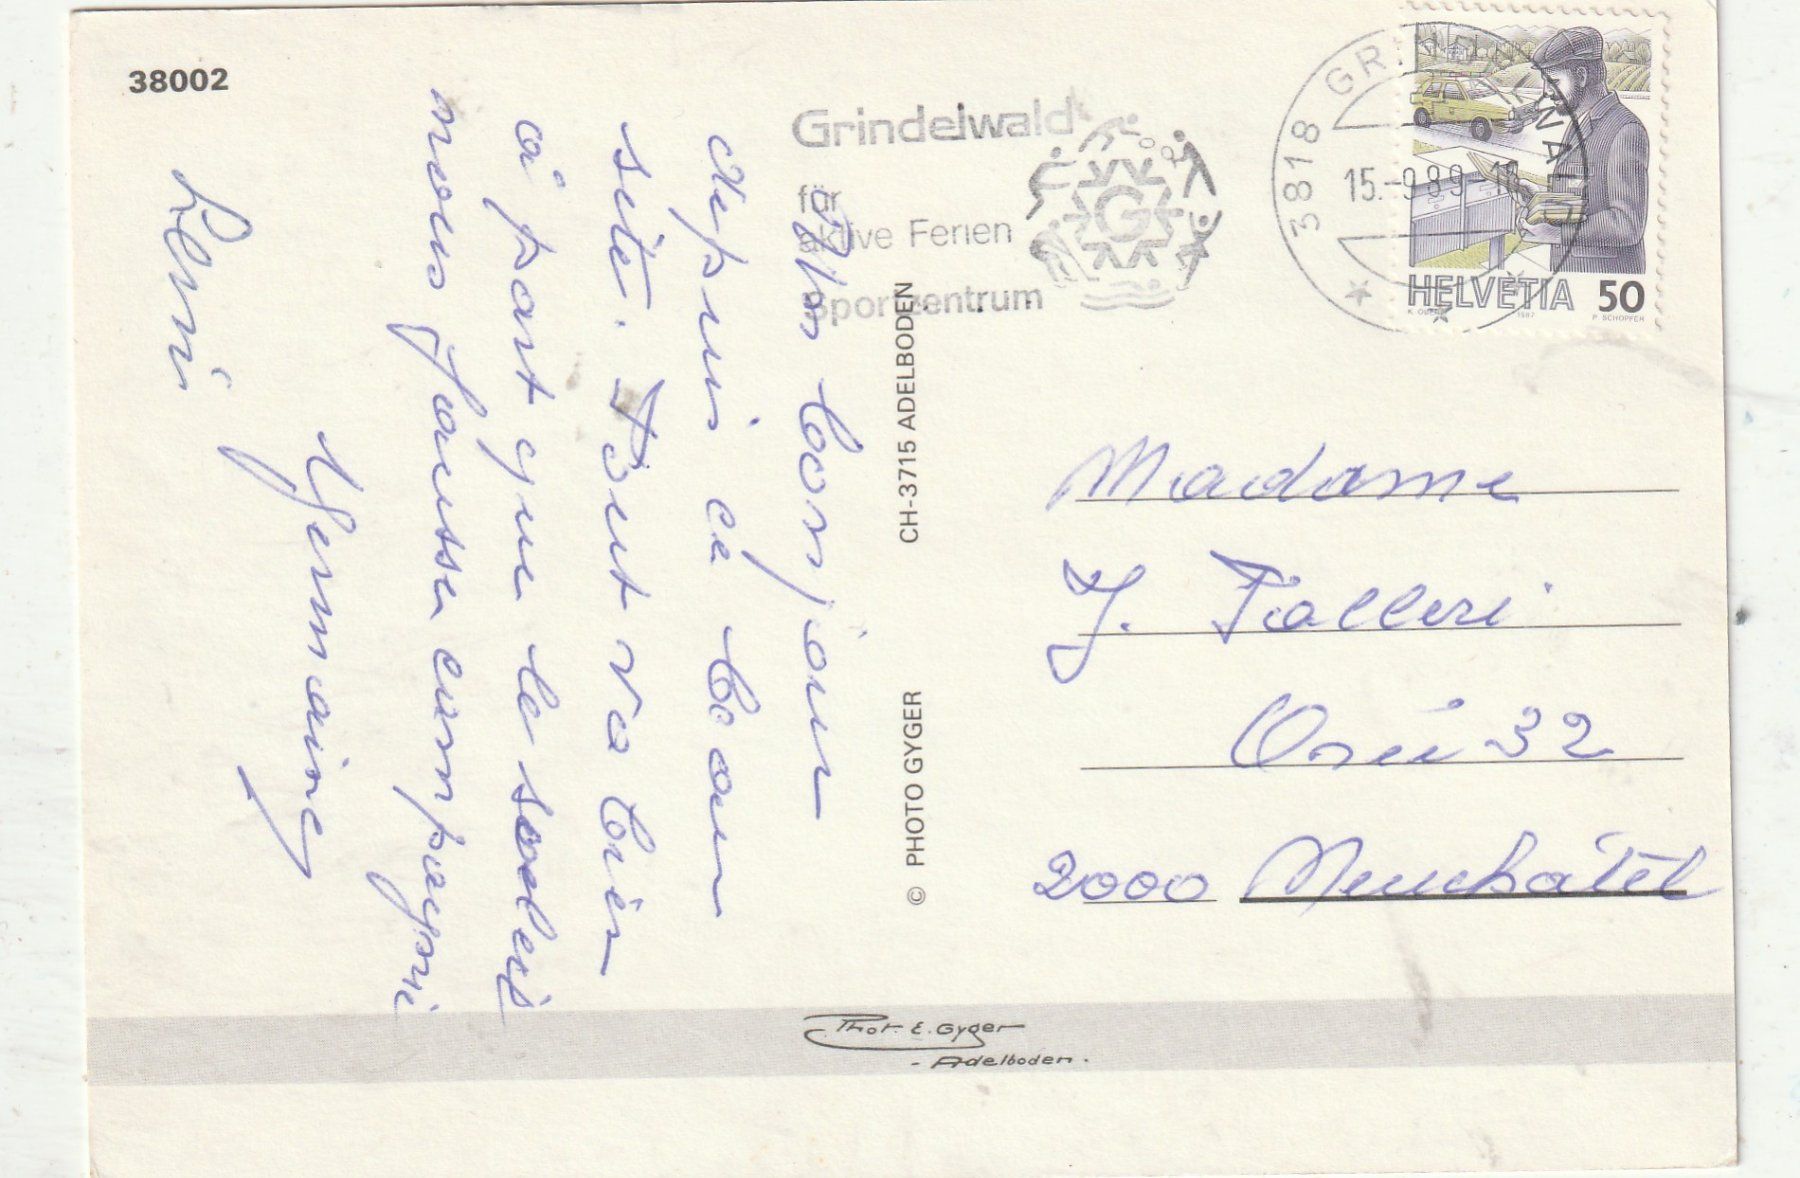 38002
Grindelwald
für
aktive Ferien
Sportzentrum
3818 GRINDELWALD
15.-9.89
HELVETIA 50
1987
P. SCHOPFER
Un bonjour
depuis ce beau
site. Tout va bien
à part que le soleil
nous fausse compagni
Germaine
CH-3715 ADELBODEN
© PHOTO GYGER
Madame
J. Talleri
2000 Neuchâtel
Phot. E. Gyger
- Adelboden.